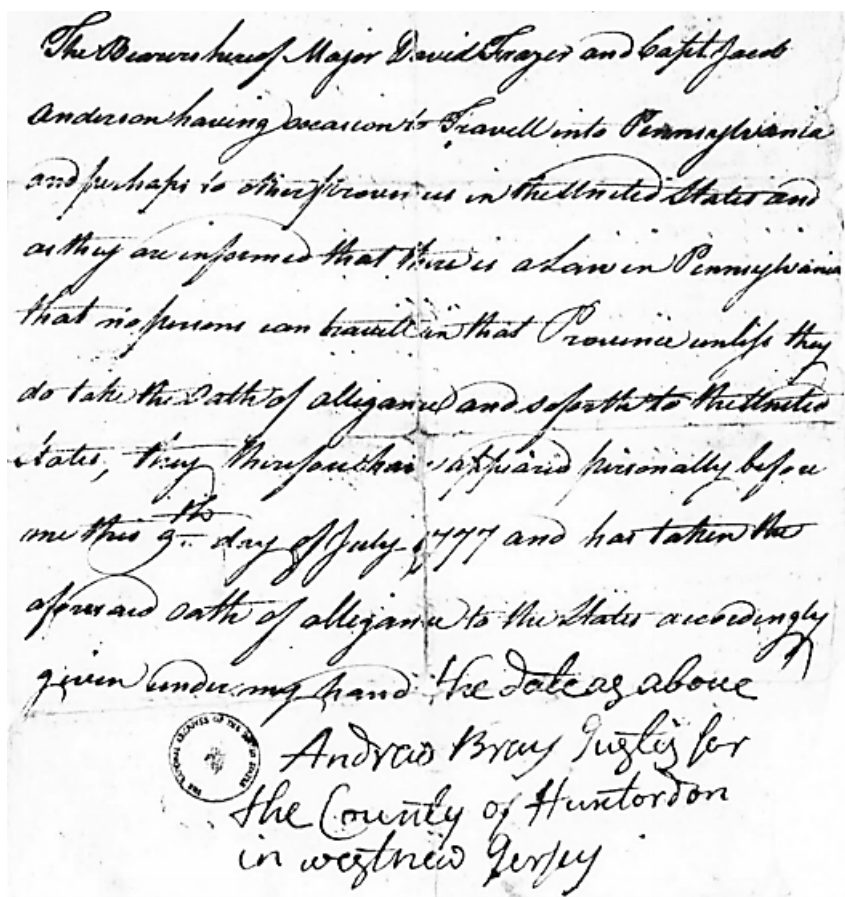 The Bearers hereof Major David Frazer and Capt. Jacob
Anderson having occasion to Travell into Pennsylvania
and perhaps to other provences in the United States and
as they are informed that there is a Law in Pennsylvania
that no persons can travell in that Provence unless they
do take the Oath of allegance and soforth to the United
States, they therefore have appeared personally before
me this 9th day of July 1777 and has taken the
aforesaid oath of allegance to the States accordingly
given under my hand the date as above
Andrew Bray Justis for
the County of Huntordon
in west new Jersey
THE NATIONAL ARCHIVES OF THE UNITED STATES